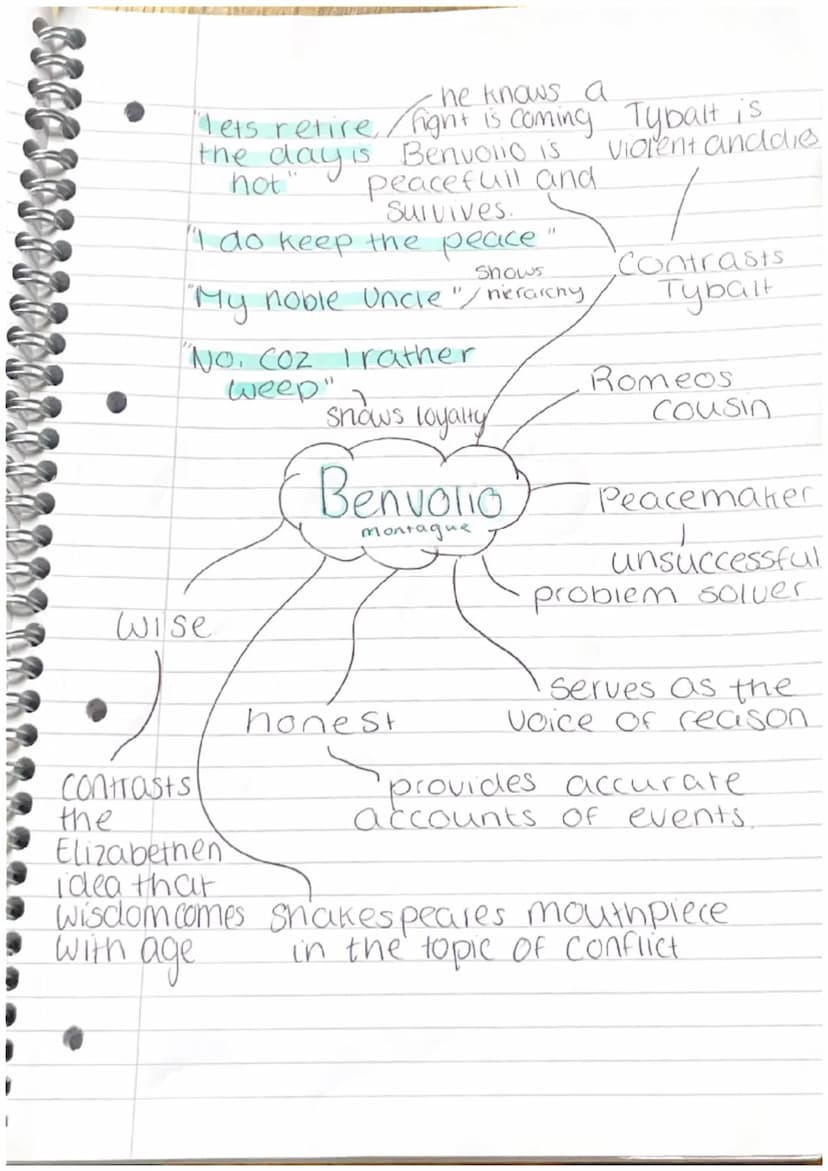 "Lets retire,
the day is
hot"
he knows a
fight is coming
Benvolio is
peacefull and
survives.
Tybalt is
violent and dies
"I do keep the peace"
Contrasts
Tybalt
"My noble Uncle"
shows
hierarchy
"No, coz I rather
weep"
shows loyalty
Romeos
cousin
Benvolio
montague
Peacemaker
unsuccessful
problem solver
wise
serves as the
voice of reason
honest
provides accurate
accounts of events.
contrasts
the
Elizabethen
idea that
wisdom comes
with age
shakespeares mouthpiece
in the topic of conflict